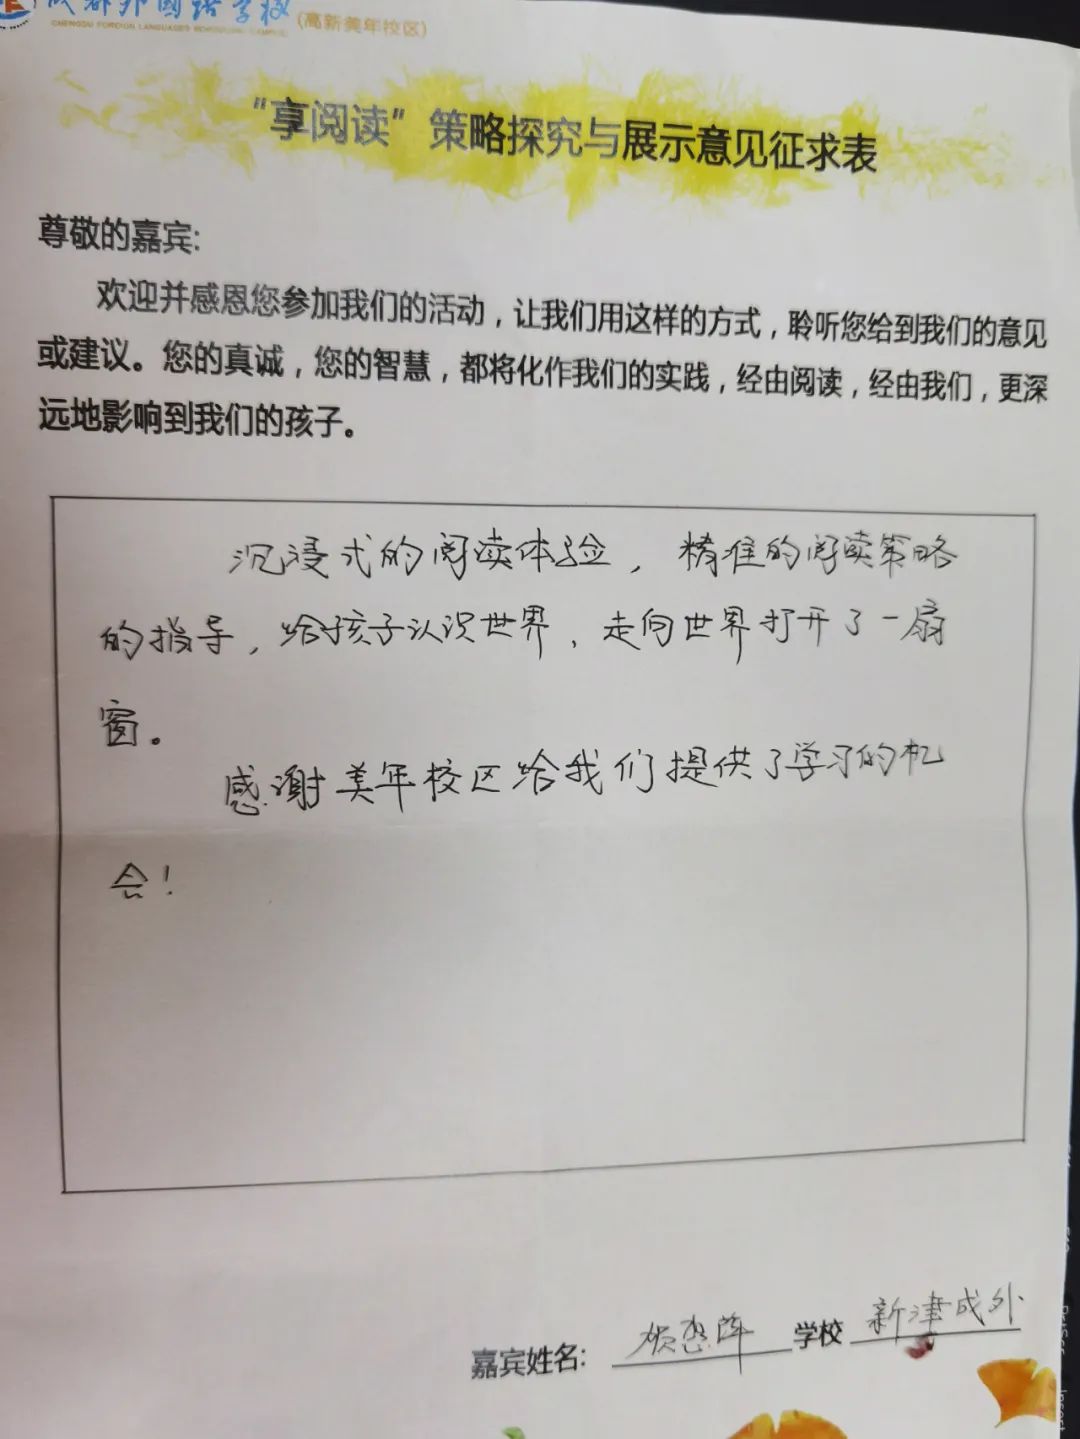 成都外國語学校(高新美年校区)
CHENGDU FOREIGN LANGUAGES SCHOOL
“享阅读”策略探究与展示意见征求表
尊敬的嘉宾:
欢迎并感恩您参加我们的活动，让我们用这样的方式，聆听您给到我们的意见
或建议。您的真诚，您的智慧，都将化作我们的实践，经由阅读，经由我们，更深
远地影响到我们的孩子。
沉浸式的阅读体验，精准的阅读策略
的指导，给孩子认识世界，走向世界打开了一扇
窗。
感谢美年校区给我们提供了学习的机
会！
嘉宾姓名: 学校 新津成外